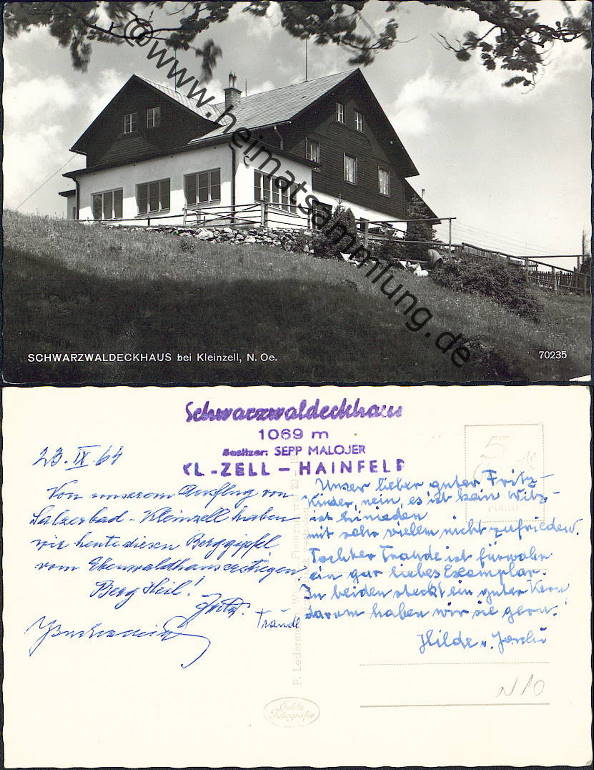 © www.heimatsammlung.de
SCHWARZWALDECKHAUS bei Kleinzell, N. Oe.
70235
Schwarzwaldeckhaus
1069 m
Besitzer: SEPP MALOJER
KL-ZELL - HAINFELD
23. IX 64
Von unserem Ausflug von
Salzerbad - Kleinzell haben
wir heute diesen Berggipfel
vom Ebenwaldhaus erstiegen.
Berg Heil!
Fritz
Traude
Unser lieber guter Fritz -
Kinder, nein, es ist kein Witz -
ist hinieden
mit sehr vielem nicht zufrieden.
Tochter Traude ist fürwahr
ein gar liebes Exemplar.
In beiden steckt ein guter Kern
darum haben wir sie gern!
Hilde u.
Echte
Fotografie